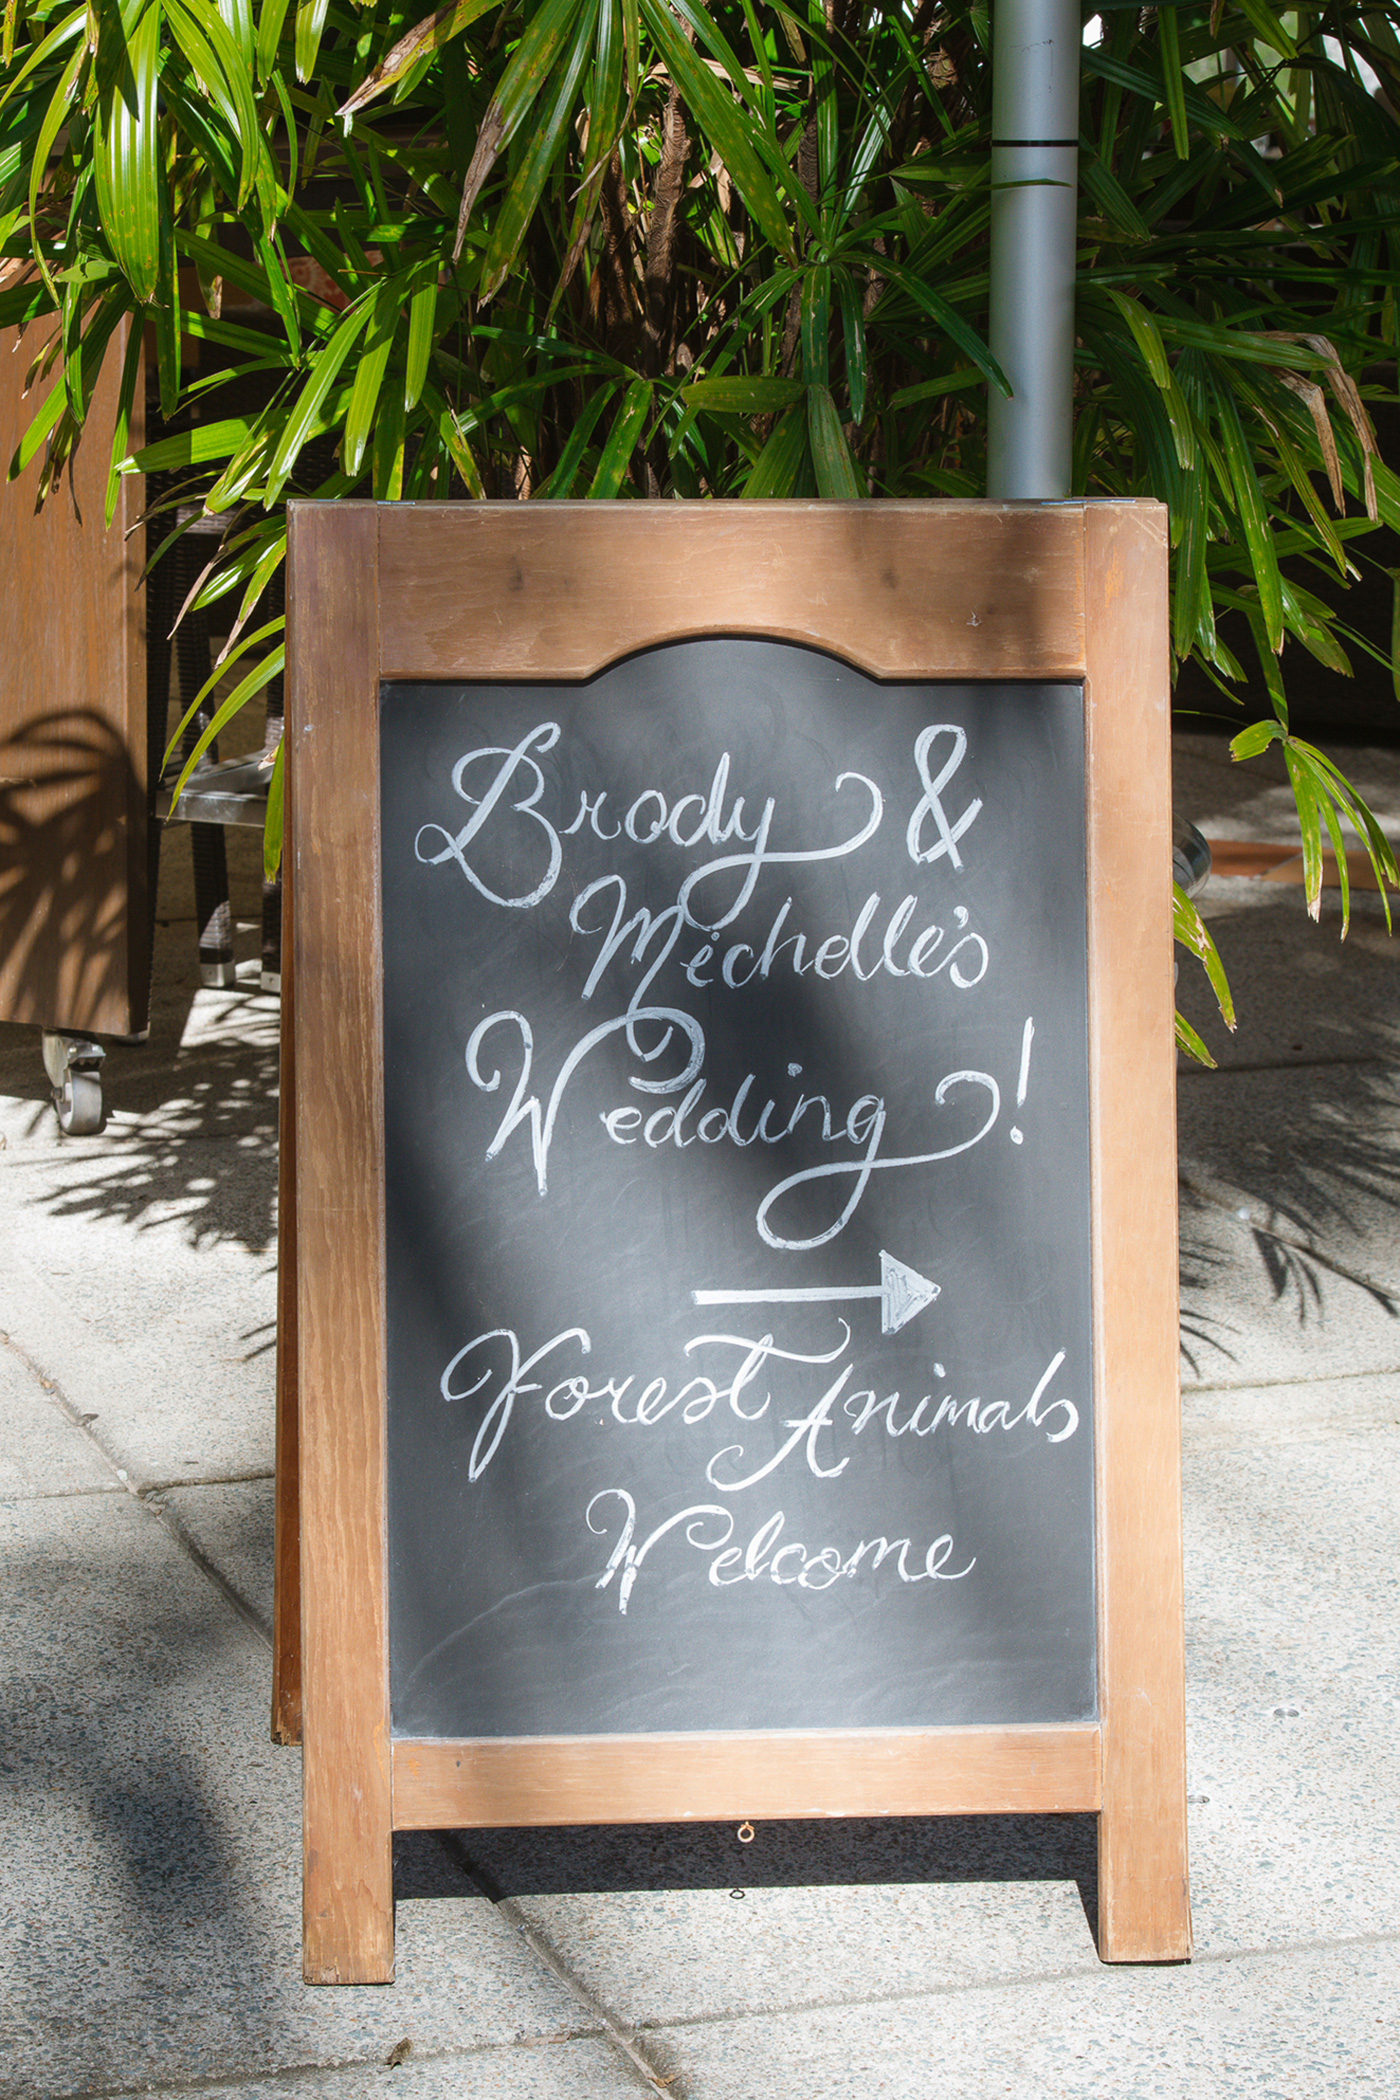 Brody &
Michelle's
Wedding!
Forest Animals
Welcome